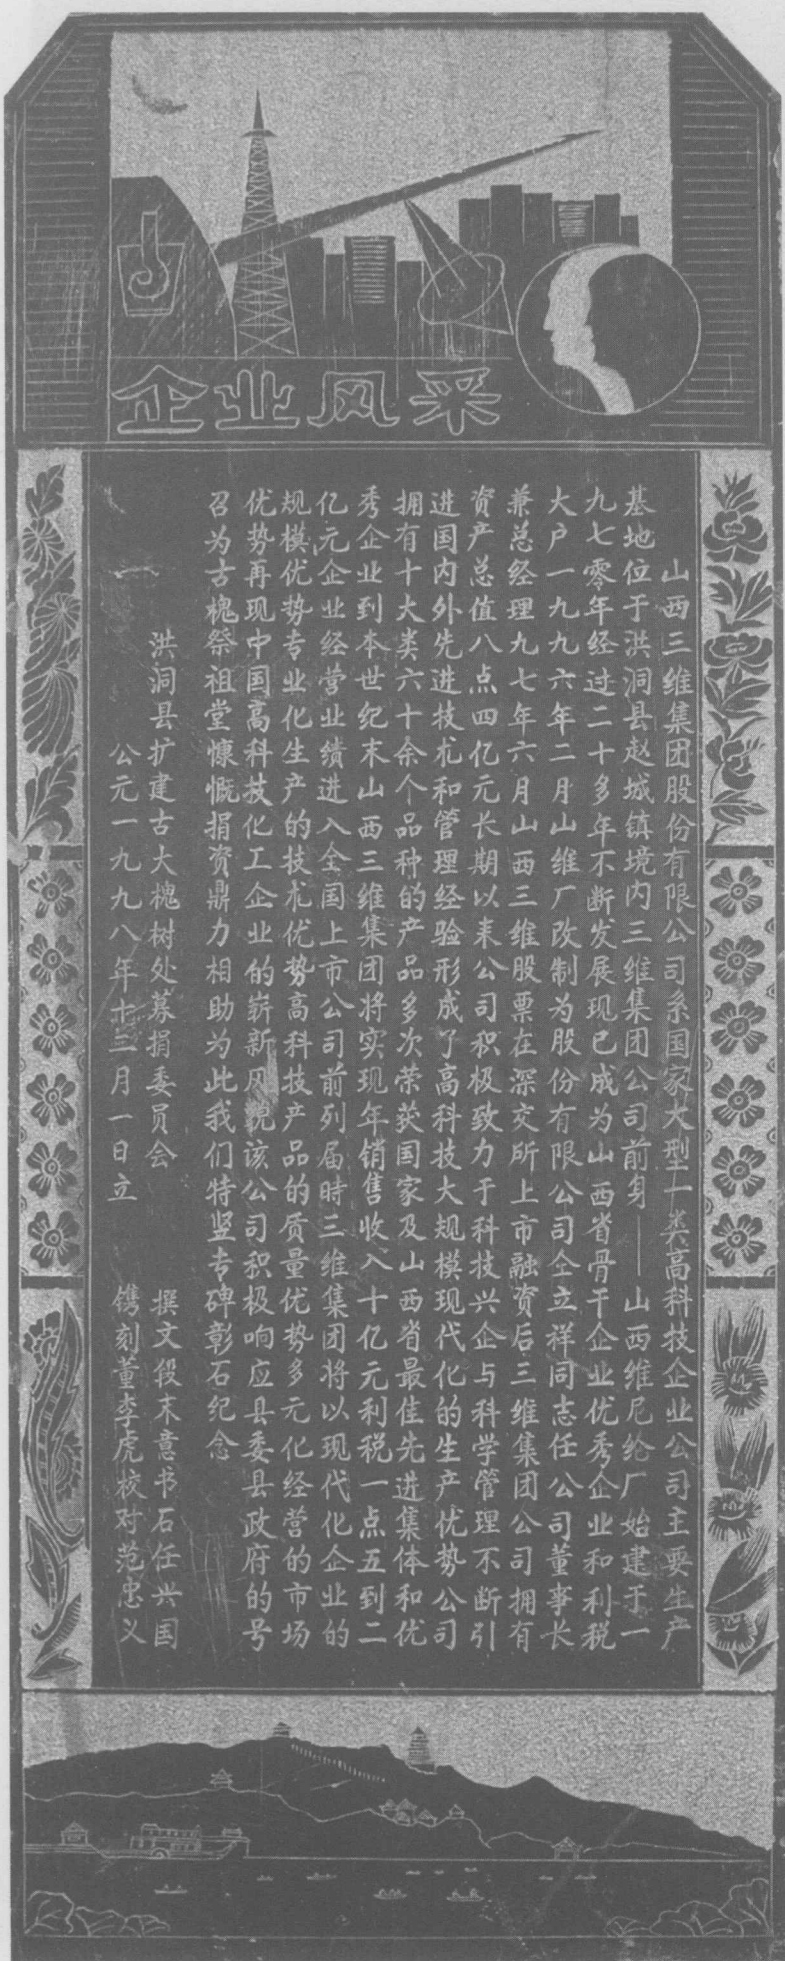 企业风采
山西三维集团股份有限公司系国家大型一类高科技企业公司主要生产
基地位于洪洞县赵城镇境内三维集团公司前身——山西维尼纶厂始建于一
九七零年经过二十多年不断发展现已成为山西省骨干企业优秀企业和利税
大户一九九六年二月山维厂改制为股份有限公司仝立祥同志任公司董事长
兼总经理九七年六月山西三维股票在深交所上市融资后三维集团公司拥有
资产总值八点四亿元长期以来公司积极致力于科技兴企与科学管理不断引
进国内外先进技术和管理经验形成了高科技大规模现代化的生产优势公司
拥有十大类六十余个品种的产品多次荣获国家及山西省最佳先进集体和优
秀企业到本世纪末山西三维集团将实现年销售收入十亿元利税一点五到二
亿元企业经营业绩进入全国上市公司前列届时三维集团将以现代化企业的
规模优势专业化生产的技术优势高科技产品的质量优势多元化经营的市场
优势再现中国高科技化工企业的崭新风貌该公司积极响应县委县政府的号
召为古槐祭祖堂慷慨捐资鼎力相助为此我们特竖专碑彰石纪念
洪洞县扩建古大槐树处募捐委员会 撰文段末意书石任兴国
公元一九九八年十二月一日立 镌刻董李虎校对范忠义